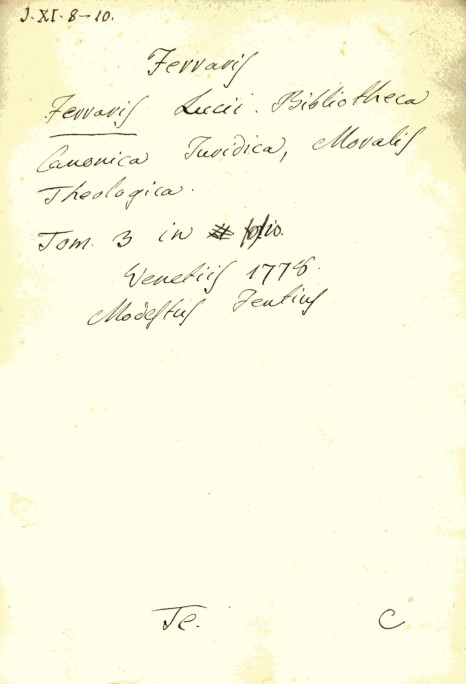 J. XI. 8-10.
Ferraris
Ferraris Lucii. Bibliotheca
Canonica Juridica, Moralis
Theologica.
Tom. 3 in folio.
Venetiis
Modestus Fentius
Te. C